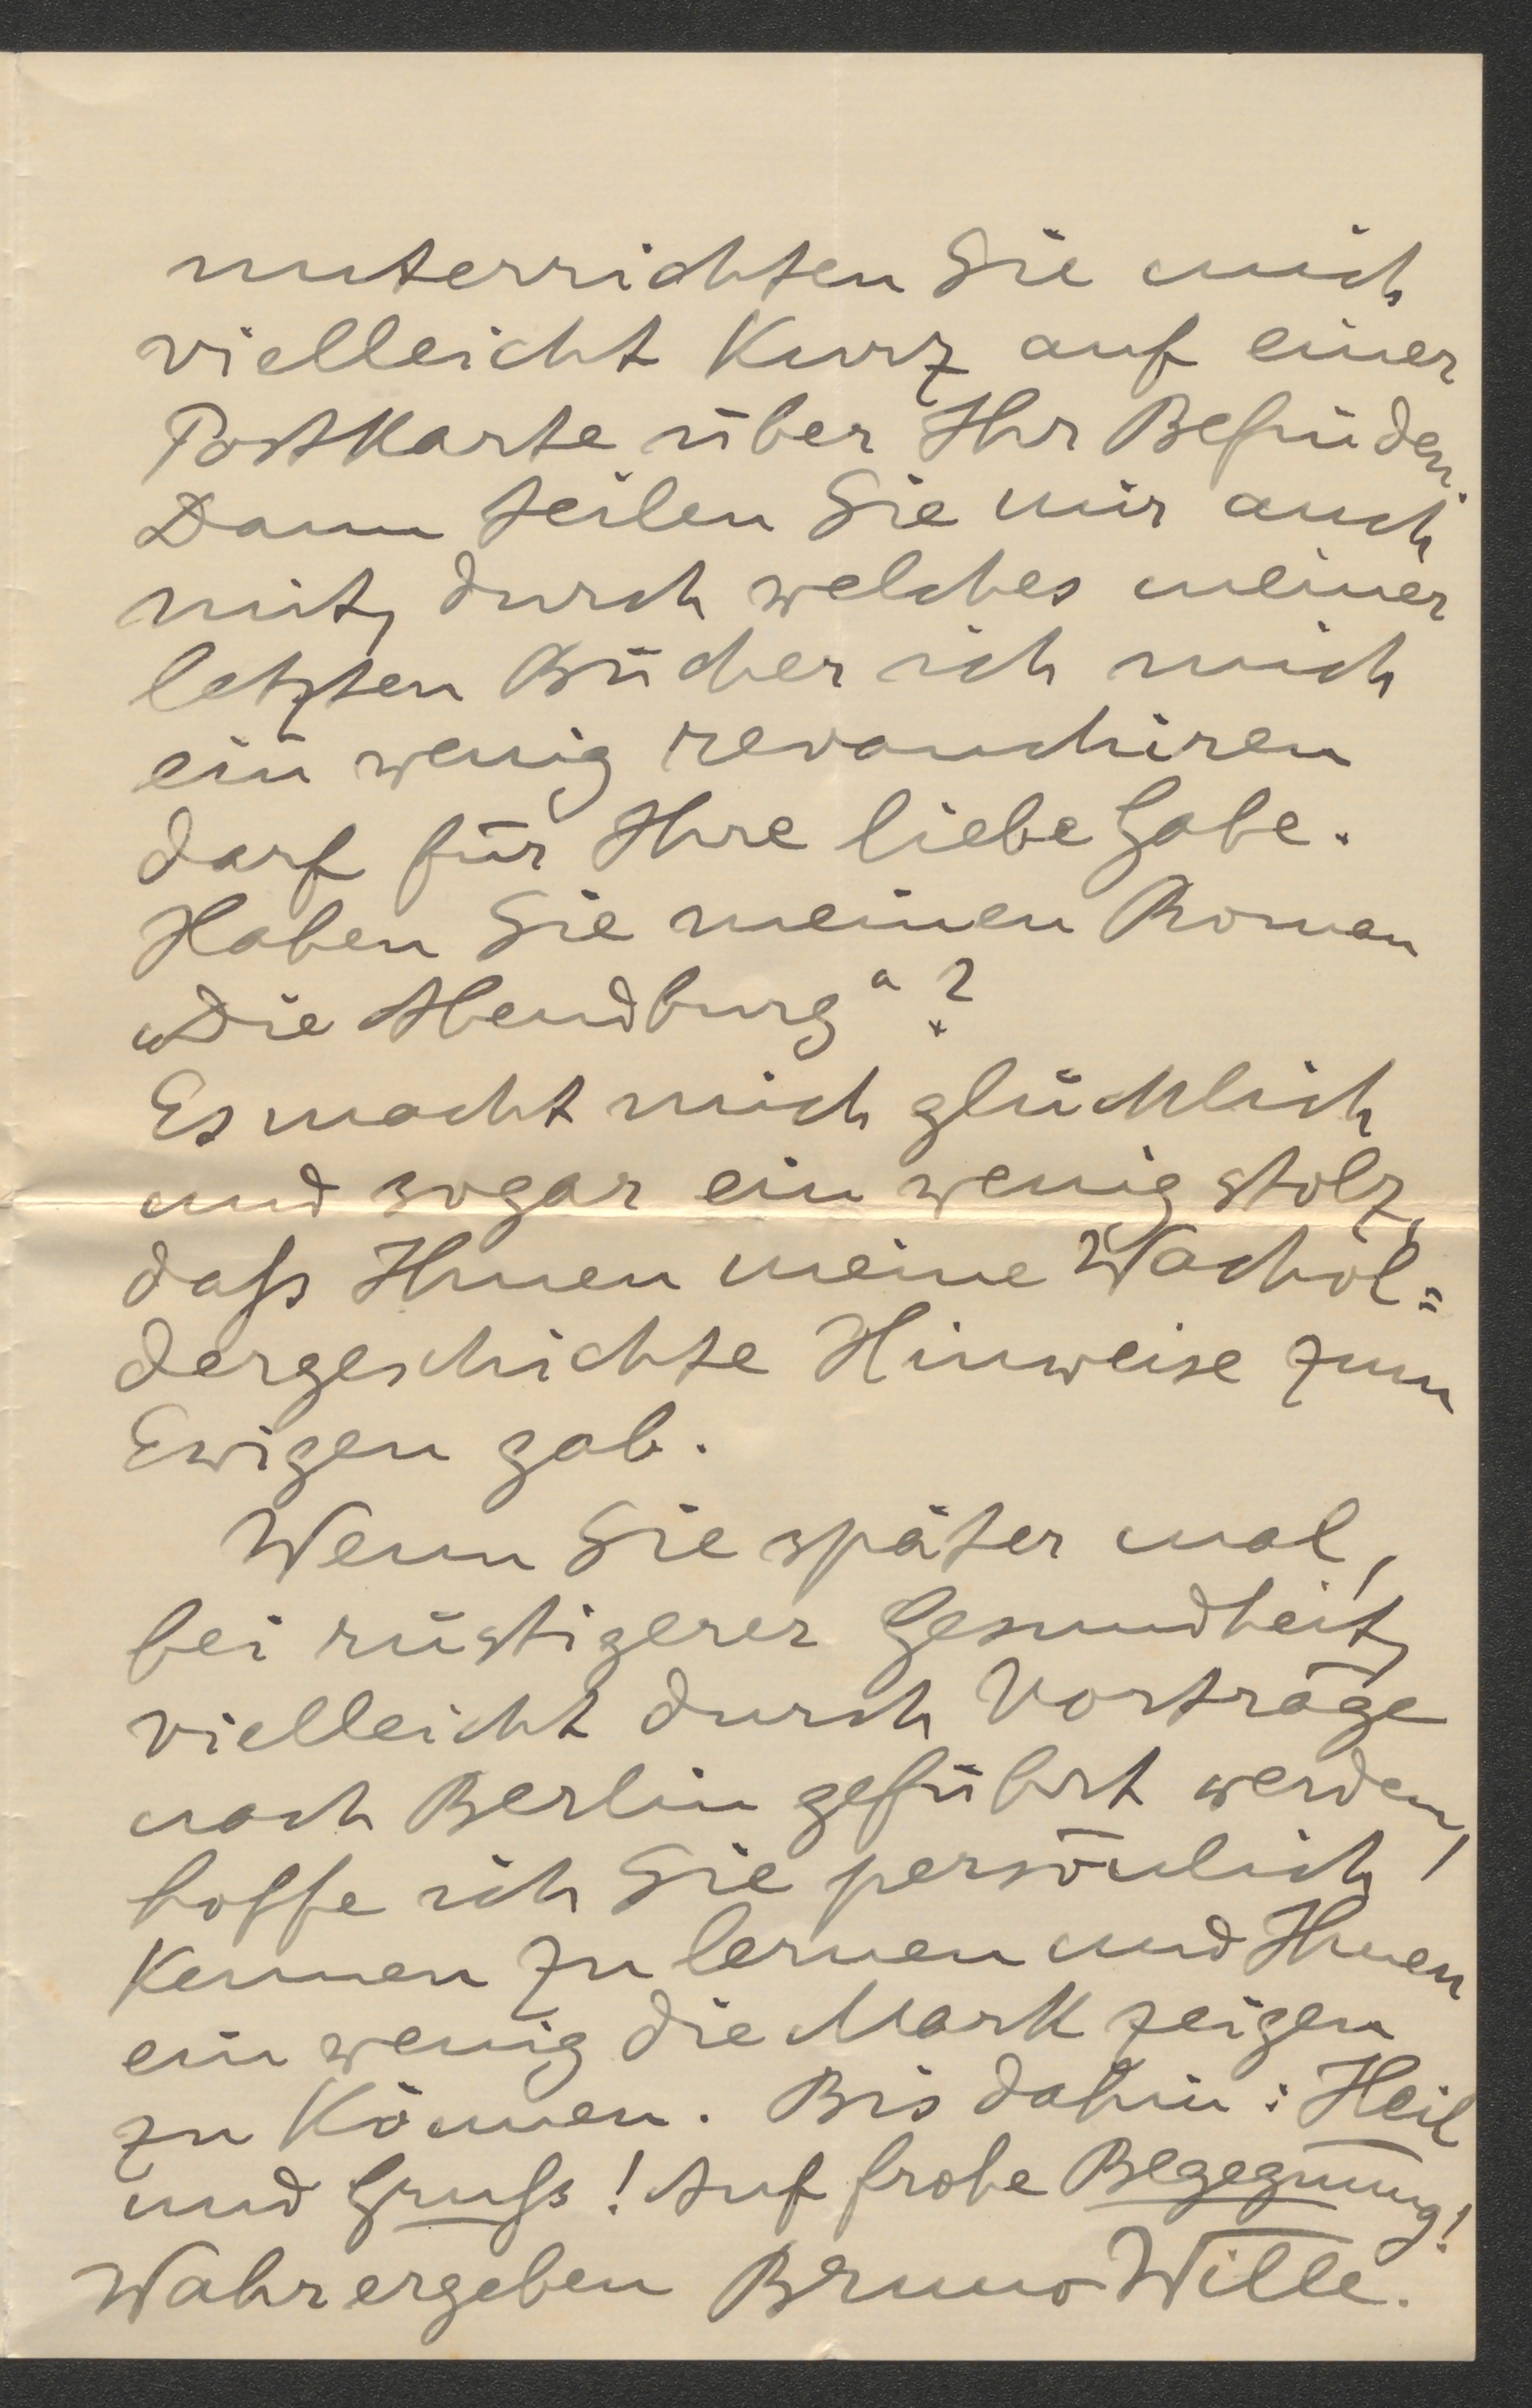 unterrichten Sie mich
vielleicht kurz auf einer
Postkarte über Ihr Befinden.
Dann teilen Sie mir auch
mit, durch welches meiner
letzten Bücher ich mich
ein wenig revanchiren
darf für Ihre liebe Gabe.
Haben Sie meinen Roman
„Die Abendburg“?
Es macht mich glücklich
und sogar ein wenig stolz,
daß Ihnen meine Wachol=
dergeschichte Hinweise zum
Ewigen gab.
Wenn Sie später mal,
bei rüstigerer Gesundheit,
vielleicht durch Vorträge
nach Berlin geführt werden,
hoffe ich Sie persönlich
kennen zu lernen und Ihnen
ein wenig die Mark zeigen
zu können. Bis dahin: Heil
und Gruß! Auf frohe Begegnung!
Wahr ergeben Bruno Wille.